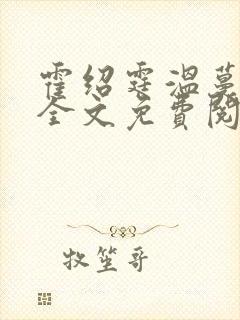 霍绍霆温蔓
全文免费阅
牧笙哥